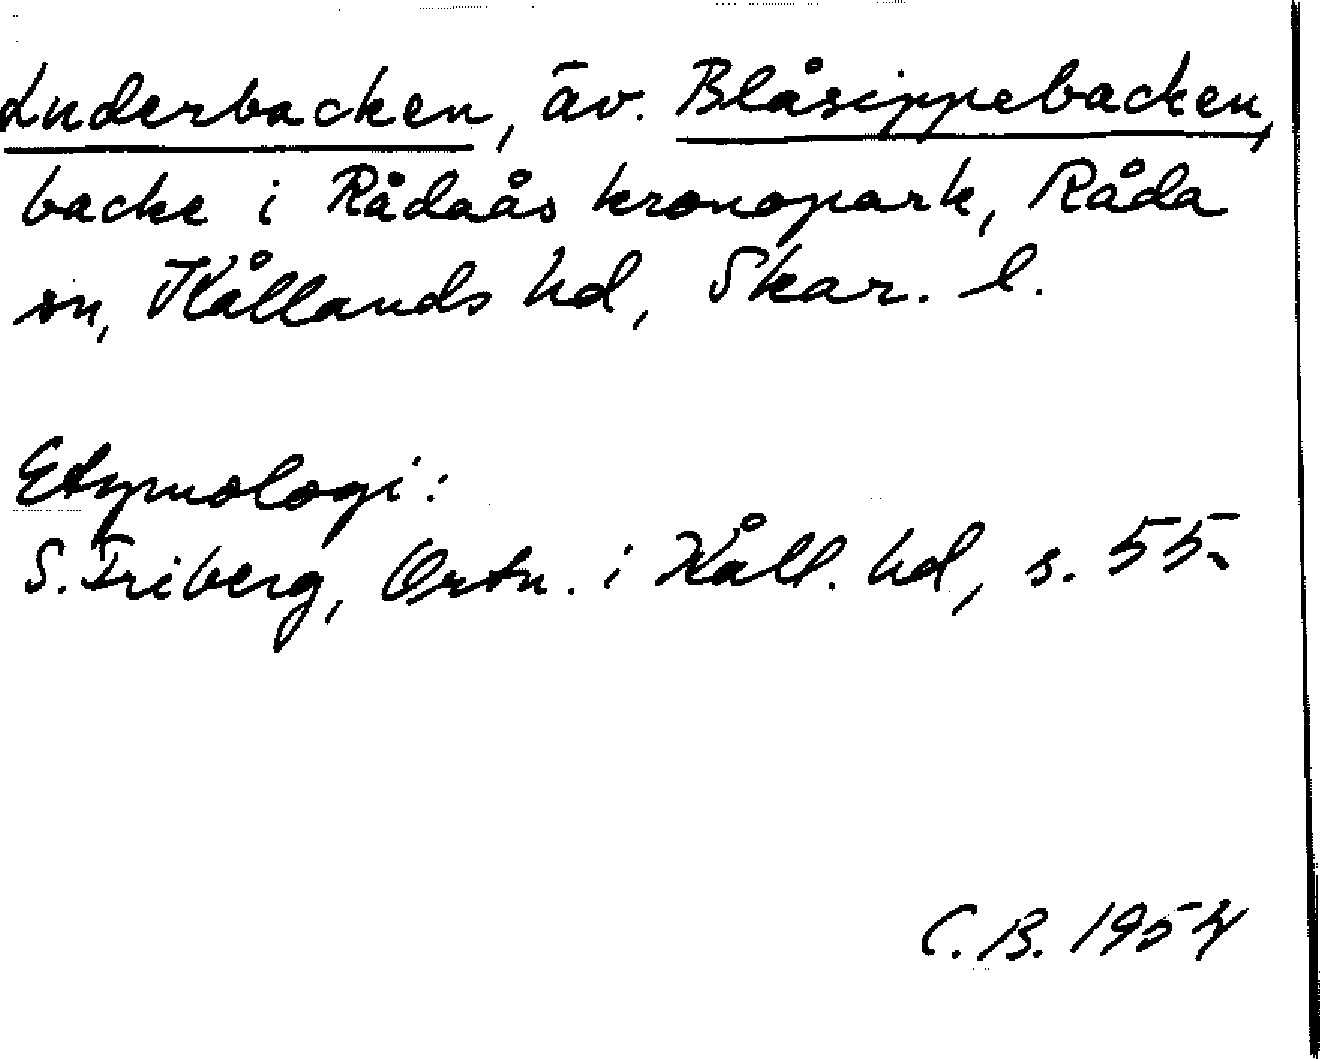 Luderbacken, äv. Blåsippebacken,
backe i Rådaås kronopark, Råda
sn, Kållands hd, Skar. l.
Etymologi:
S. Friberg, Ortn. i Kåll. hd, s. 55.
C. B. 1954